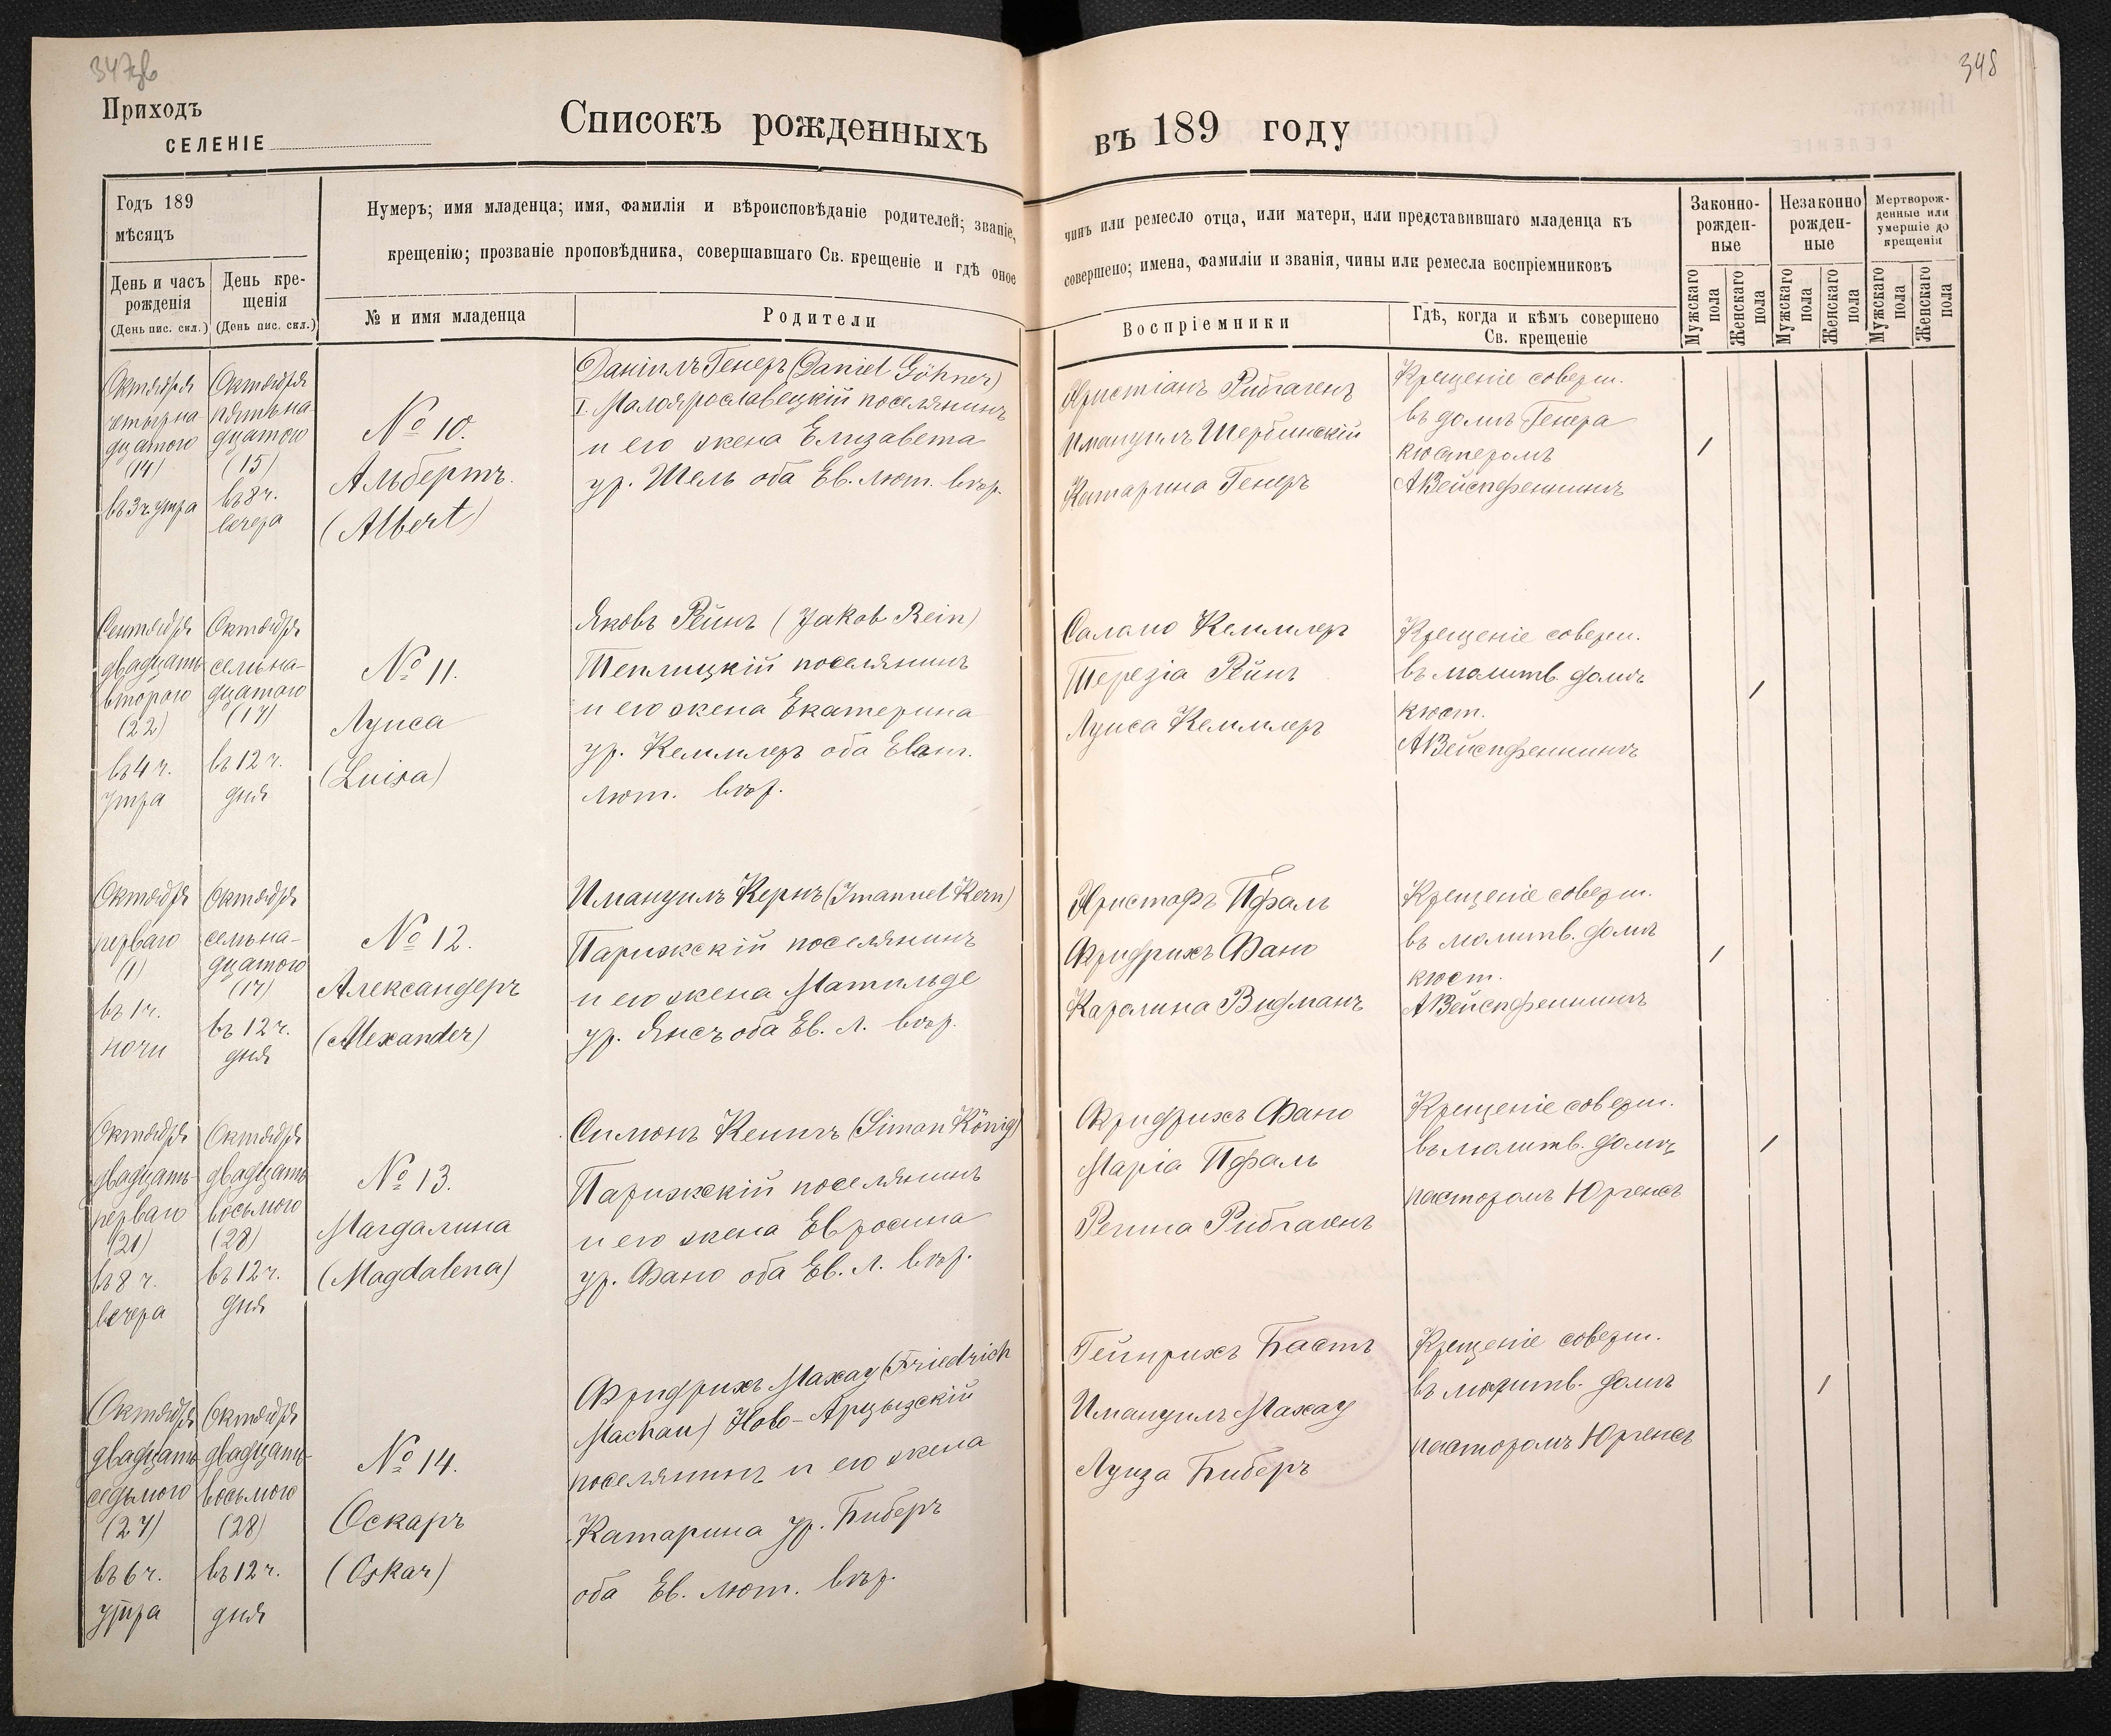 347об
348
Приходъ
СЕЛЕНІЕ
Списокъ рожденныхъ въ 189 году
Годъ 189
мѣсяцъ
День и часъ рожденія
(День пис. скл.)
День крещенія
(День пис. скл.)
Нумеръ; имя младенца; имя, фамилія и вѣроисповѣданіе родителей; званіе, чинъ или ремесло отца, или матери, или представившаго младенца къ
крещенію; прозваніе проповѣдника, совершавшаго Св. крещеніе и гдѣ оное совершено; имена, фамиліи и званія, чины или ремесла воспріемниковъ
№ и имя младенца
Родители
Воспріемники
Гдѣ, когда и кѣмъ совершено
Св. крещеніе
Законно-
рожден-
ные
Незаконно
рожден-
ные
Мертворож-
денные или
умершіе до
крещенія
Мужскаго пола
Женскаго пола
Мужскаго пола
Женскаго пола
Мужскаго пола
Женскаго пола
Октября
четырна-
дцатого
(14)
въ 3 ч. утра
Октября
пятьна-
дцатого
(15)
въ 8 ч.
вечера
№ 10.
Альбертъ.
(Albert)
Даніилъ Генеръ (Daniel Göhner)
I. Малоярославецкій поселянинъ
и его жена Елизавета
ур. Шель оба Ев. лют. вѣр.
Христіанъ Рибгагенъ
Имануилъ Шербинскій
Катарина Генеръ
Крещеніе соверш.
въ домѣ Генера
кюстеромъ
А Вейспфеннигъ
/
Сентября
двадцать
второго
(22)
въ 4 ч.
утра
Октября
семьна-
дцатого
(17)
въ 12 ч.
дня
№ 11.
Луиса
(Luisa)
Яковъ Рейнъ (Jakob Rein)
Теплицкій поселянинъ
и его жена Екатерина
ур. Кеммлеръ оба Еванг.
лют. вѣр.
Саломо Кеммлеръ
Терезіа Рейнъ
Луиса Кеммлеръ
Крещеніе соверш.
въ молитв. домѣ
кюст.
А Вейспфеннигъ
/
Октября
перваго
(1)
въ 1 ч.
ночи
Октября
семьна-
дцатого
(17)
въ 12 ч.
дня
№ 12.
Александеръ
(Alexander)
Имануилъ Кернъ (Imanuel Kern)
Парижскій поселянинъ
и его жена Матильде
ур. Янсъ оба Ев. Л. вѣр.
Христофъ Пфаль
Фридрихъ Фано
Каролина Видманъ
Крещеніе соверш.
въ молитв. домѣ
кюст.
А Вейспфеннигъ
/
Октября
двадцать
перваго
(21)
въ 8 ч.
вечера
Октября
двадцать
восьмого
(28)
въ 12 ч.
дня
№ 13.
Магдалина
(Magdalena)
Симонъ Кенигъ (Simon König)
Парижскій поселянинъ
и его жена Евросина
ур. Фано оба Ев. Л. вѣр.
Фридрихъ Фано
Маріа Пфаль
Регина Рибгагенъ
Крещеніе соверш.
въ молитв. домѣ
пасторомъ Юргенсъ
/
Октября
двадцать
седьмого
(27)
въ 6 ч.
утра
Октября
двадцать
восьмого
(28)
въ 12 ч.
дня
№ 14.
Оскаръ
(Oskar)
Фридрихъ Махау (Friedrich
Machau) Ново-Арцызскій
поселянинъ и его жена
Катарина ур. Биберъ
оба Ев. лют. вѣр.
Гейнрихъ Бастъ
Имануилъ Махау
Луиза Биберъ
Крещеніе соверш.
въ молитв. домѣ
пасторомъ Юргенсъ
/